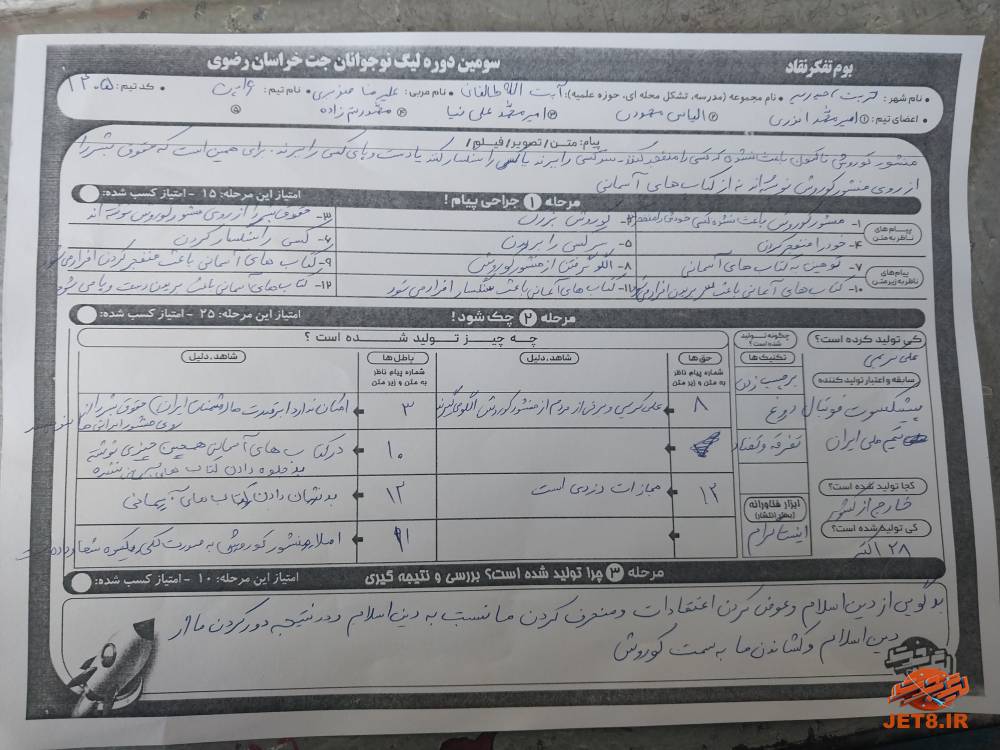 بوم تفکر نقاد
سومین دوره لیگ نوجوانان جت خراسان رضوی
نام شهر: تربت حیدریه • نام مجموعه (مدرسه، تشکل محله ای، حوزه علمیه): آیت الله طالقانی • نام مربی: علیرضا • نام تیم: • کد تیم: ۱۲۰۵
اعضای تیم: ① امیرمحمد ② الیاس ③ امیرمحمد علی نیا ④ ⑤
پیام: متن / تصویر / فیلم /
منشور کوروش تاکنون باعث نشده که کسی را منفجر کنند، سر کسی را ببرند یا کسی را سنگسار کنند یا دست و پای کسی را ببرند. برای همین است که حقوق بشر را
از روی منشور کوروش نوشته اند نه از کتاب های آسمانی
مرحله ۱ جراحی پیام!
امتیاز این مرحله: ۱۵ - امتیاز کسب شده:
پیام های ناظر به متن
۱- منشور کوروش باعث نشده کسی خودش را منفجر
۲- کوروش بزرگ
۳- حقوق بشر از روی منشور کوروش نوشته اند
۴- خود را منفجر کردن
۵- سر کسی را بریدن
۶- کسی را سنگسار کردن
پیام های ناظر به زیر متن
۷- توهین به کتاب های آسمانی
۸- الگو گرفتن از منشور کوروش
۹- کتاب های آسمانی باعث منفجر کردن افراد می شود
۱۰- کتاب های آسمانی باعث سر بریدن افراد می شود
۱۱- کتاب های آسمانی باعث سنگسار افراد می شود
۱۲- کتاب های آسمانی باعث بریدن دست و پا می شود
مرحله ۲ چک شود!
امتیاز این مرحله: ۲۵ - امتیاز کسب شده:
کی تولید کرده است؟
علی کریمی
سابقه و اعتبار تولید کننده
پیشکسوت فوتبال
تیم ملی ایران
کجا تولید شده است؟
خارج از کشور
کی تولید شده است؟
۲۸ اکتبر
چگونه تولید شده است؟
تکنیک ها
برچسب زدن
دروغ
تفرقه و تضاد
ابزار فناورانه (بستر انتشار)
اینستاگرام
چه چیز تولید شده است؟
حق ها
شماره پیام ناظر به متن و زیر متن
شاهد، دلیل
باطل ها
شماره پیام ناظر به متن و زیر متن
شاهد، دلیل
۸
علی کریمی و برخی از مردم از منشور کوروش الگو می گیرند
۳
امکان ندارد ابرقدرت ها (دشمنان ایران) حقوق بشر را از
روی منشور ایرانی ها بنویسند
۱۰
در کتاب های آسمانی همچین چیزی نوشته نشده
بد جلوه دادن کتاب های آسمانی
۱۲
مجازات دزدی است
۱۲
بد نشان دادن کتاب های آسمانی
۱۱
اصلا منشور کوروش به صورت
مرحله ۳ چرا تولید شده است؟ بررسی و نتیجه گیری
امتیاز این مرحله: ۱۰ - امتیاز کسب شده:
بدگویی از دین اسلام و عوض کردن اعتقادات و منحرف کردن ما نسبت به دین اسلام و در نتیجه دور کردن ما از
دین اسلام و کشاندن ما به سمت کوروش
JET8.IR